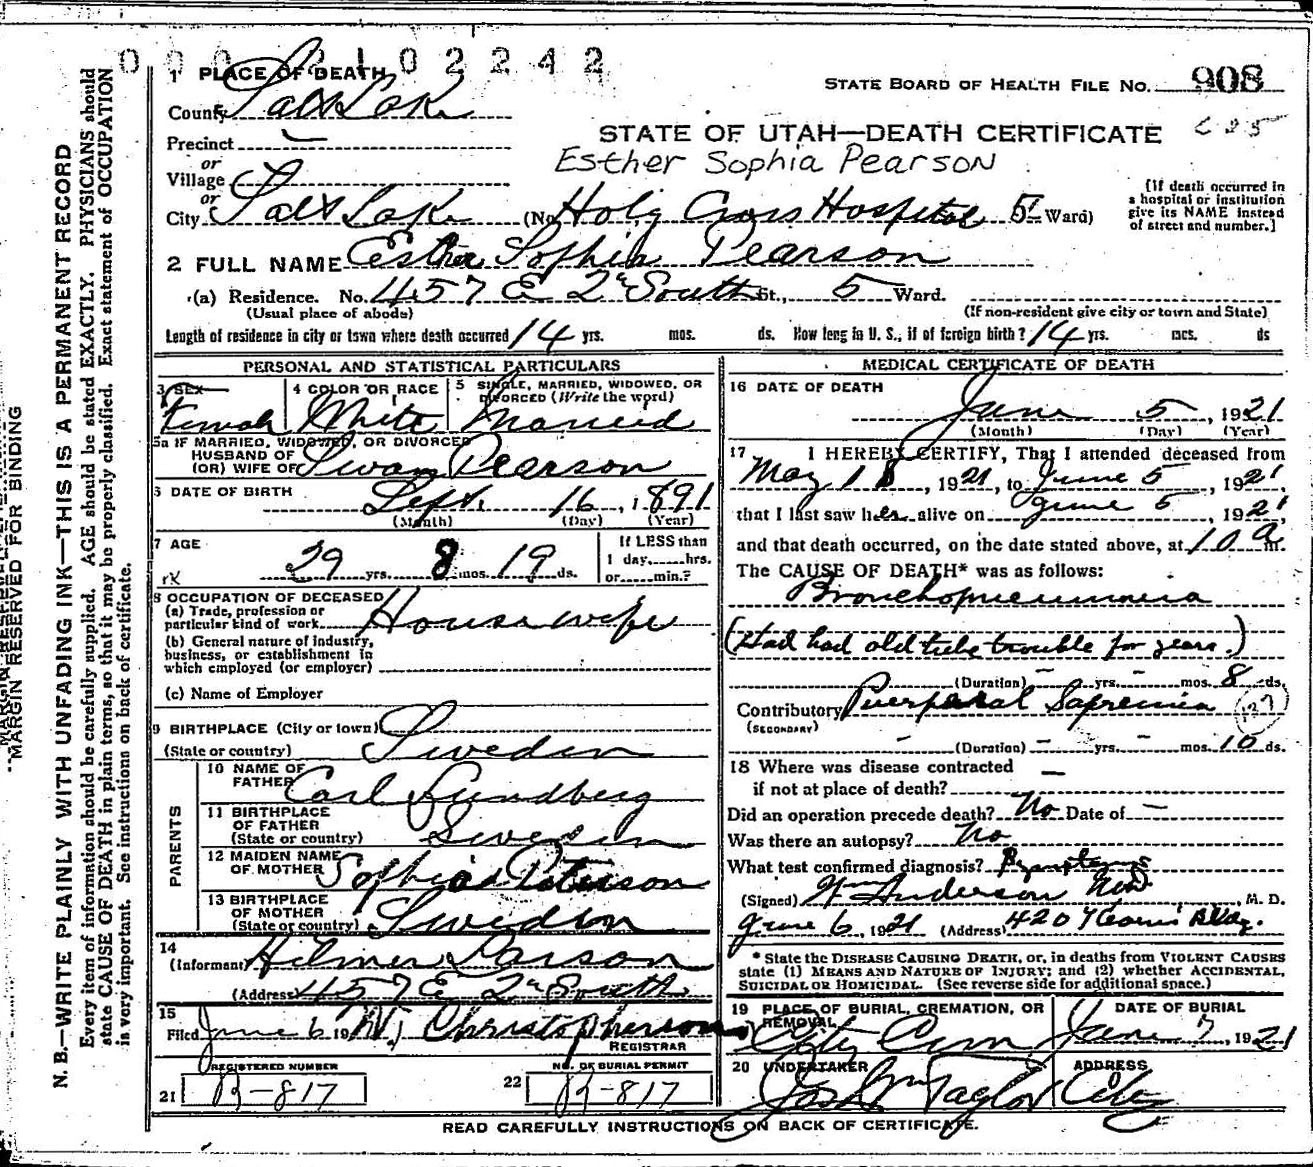 0 0 0 2 1 0 2 2 4 2
STATE BOARD OF HEALTH FILE NO. 908
1 PLACE OF DEATH
County Salt Lake
STATE OF UTAH—DEATH CERTIFICATE
Precinct —
Esther Sophia Pearson
or
Village
or
City Salt Lake (No. Holy Cross Hospital 5 Ward)
[If death occurred in
a hospital or institution
give its NAME instead
of street and number.]
2 FULL NAME Esther Sophia Pearson
(a) Residence. No. 457 E 2d South St., 5 Ward.
(Usual place of abode) (If non-resident give city or town and State)
Length of residence in city or town where death occurred 14 yrs. mos. ds. How long in U. S., if of foreign birth? 14 yrs. mos. ds
PERSONAL AND STATISTICAL PARTICULARS
3 SEX Female
4 COLOR OR RACE White
5 SINGLE, MARRIED, WIDOWED, OR
DIVORCED (Write the word) Married
5a IF MARRIED, WIDOWED, OR DIVORCED
HUSBAND OF
(OR) WIFE OF Swan Pearson
6 DATE OF BIRTH Sept. 16, 1891
(Month) (Day) (Year)
7 AGE 29 yrs. 8 mos. 19 ds.
If LESS than
1 day, ......hrs.
or......min.?
8 OCCUPATION OF DECEASED
(a) Trade, profession or
particular kind of work Housewife
(b) General nature of industry,
business, or establishment in
which employed (or employer)
(c) Name of Employer
9 BIRTHPLACE (City or town)
(State or country) Sweden
PARENTS
10 NAME OF
FATHER Carl Lundberg
11 BIRTHPLACE
OF FATHER
(State or country) Sweden
12 MAIDEN NAME
OF MOTHER Sophia Peterson
13 BIRTHPLACE
OF MOTHER
(State or country) Sweden
14
(Informant) Hilmer Parson
(Address) 457 E 2d South
15
Filed June 6, 19 Christopherson
REGISTRAR
REGISTERED NUMBER
21 B-817
NO. OF BURIAL PERMIT
22 B-817
MEDICAL CERTIFICATE OF DEATH
16 DATE OF DEATH
June 5, 1921
(Month) (Day) (Year)
17 I HEREBY CERTIFY, That I attended deceased from
May 18, 1921, to June 5, 1921,
that I last saw her alive on June 5, 1921,
and that death occurred, on the date stated above, at 10 a m.
The CAUSE OF DEATH* was as follows:
Bronchopneumonia
(Had had old tube trouble for years.)
(Duration) – yrs. – mos. 8 ds.
Contributory Puerperal Sapremia 137
(SECONDARY)
– (Duration) – yrs. – mos. 10 ds.
18 Where was disease contracted
if not at place of death? —
Did an operation precede death? No Date of —
Was there an autopsy? No
What test confirmed diagnosis? Symptoms
(Signed) Wm Anderson MD, M. D.
June 6, 1921 (Address) 420 Bldg.
* State the DISEASE CAUSING DEATH, or, in deaths from VIOLENT CAUSES
state (1) MEANS AND NATURE OF INJURY; and (2) whether ACCIDENTAL,
SUICIDAL OR HOMICIDAL. (See reverse side for additional space.)
19 PLACE OF BURIAL, CREMATION, OR
REMOVAL City Cem
DATE OF BURIAL
June 7, 1921
20 UNDERTAKER Jos Wm Taylor
ADDRESS City
READ CAREFULLY INSTRUCTIONS ON BACK OF CERTIFICATE.
MARGIN RESERVED FOR BINDING
N. B.—WRITE PLAINLY WITH UNFADING INK—THIS IS A PERMANENT RECORD
Every item of information should be carefully supplied. AGE should be stated EXACTLY. PHYSICIANS should
state CAUSE OF DEATH in plain terms, so that it may be properly classified. Exact statement of OCCUPATION
is very important. See instructions on back of certificate.